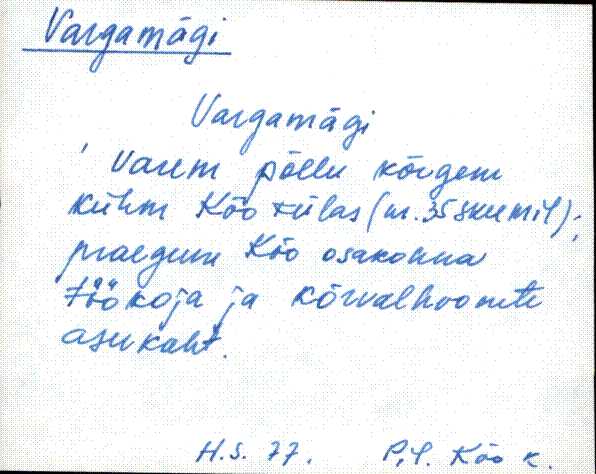 Vargamägi
Vargamägi
Varem põllu kõrgem
kühm Kõo külas (nr. 35 skeemil);
praegune Kõo osakonna
töökoja ja kõrvalhoonete
asukoht.
H.S. 77. P,I. Kõo k.